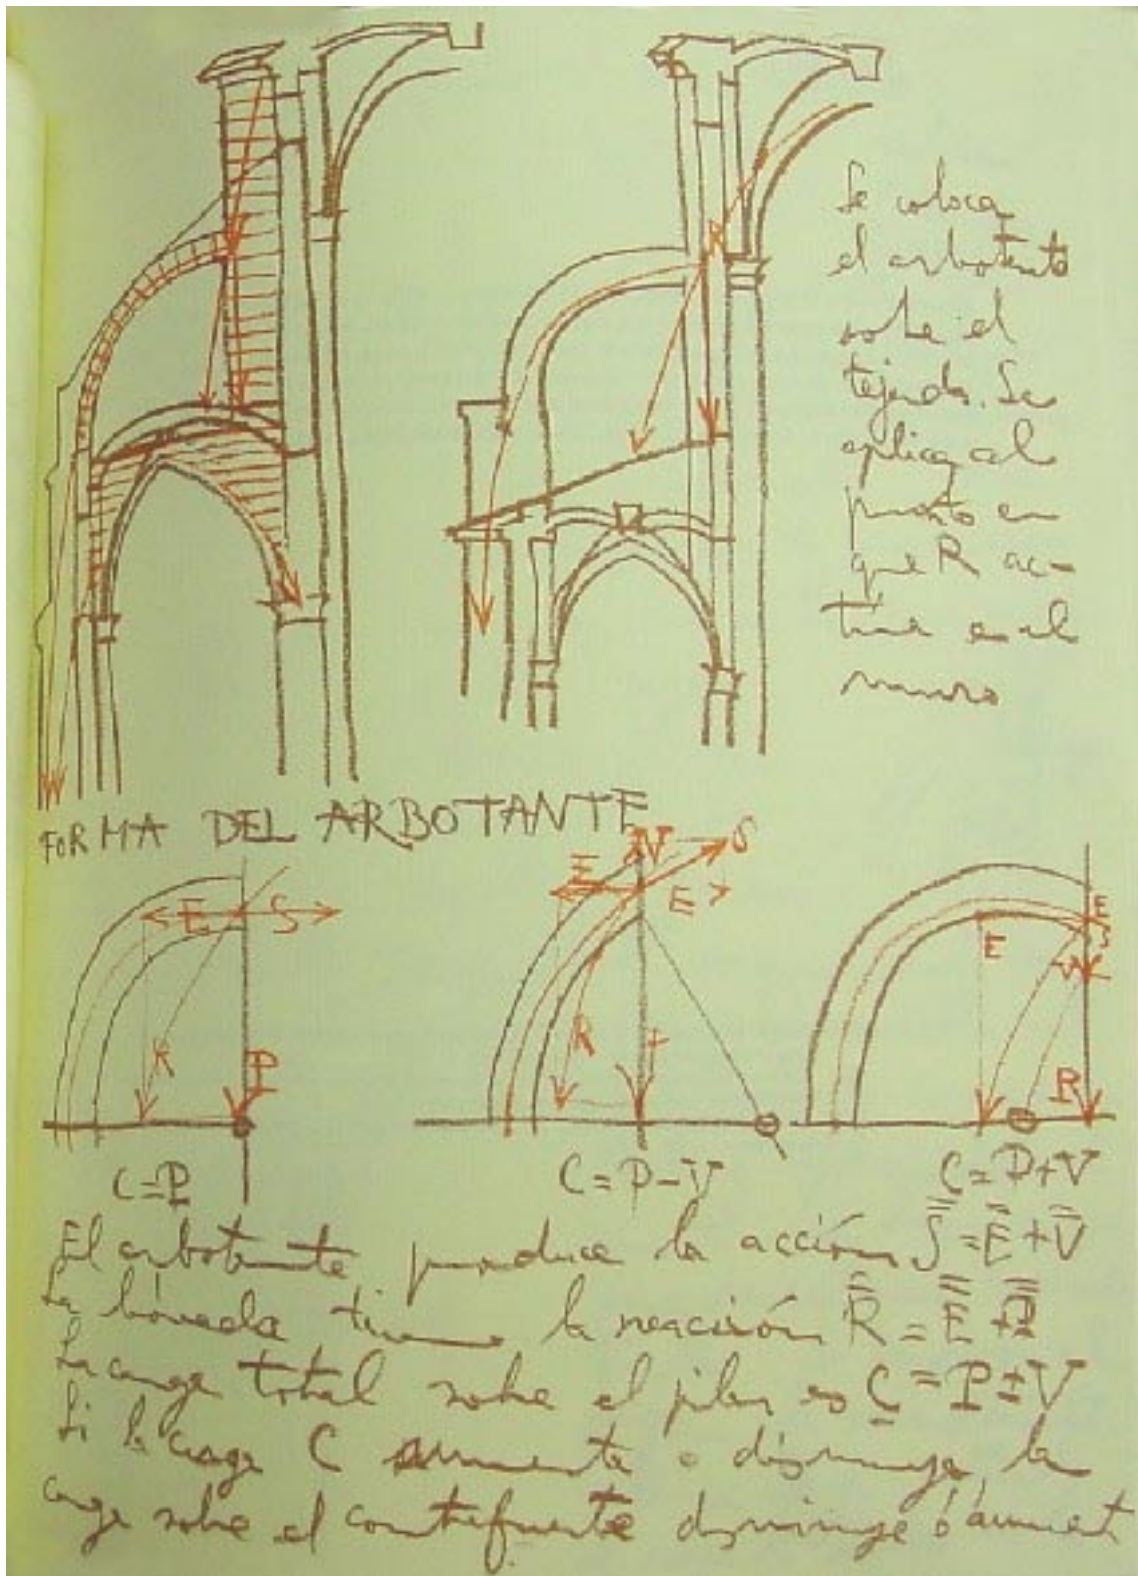 Se coloca
el arbotante
sobre el
tejado. Se
aplica al
punto en
que R ac-
túa en el
muro
R
FORMA DEL ARBOTANTE
E S
R P
C=P
V S
E E
R
C=P-V
E
E S
V
P
C=P+V
El arbotante produce la acción S=E+V
La bóveda tiene la reacción R=E+P
La carga total sobre el pilar es C=P±V
Si la carga C aumenta o disminuye, la
carga sobre el contrafuerte disminuye ó aument